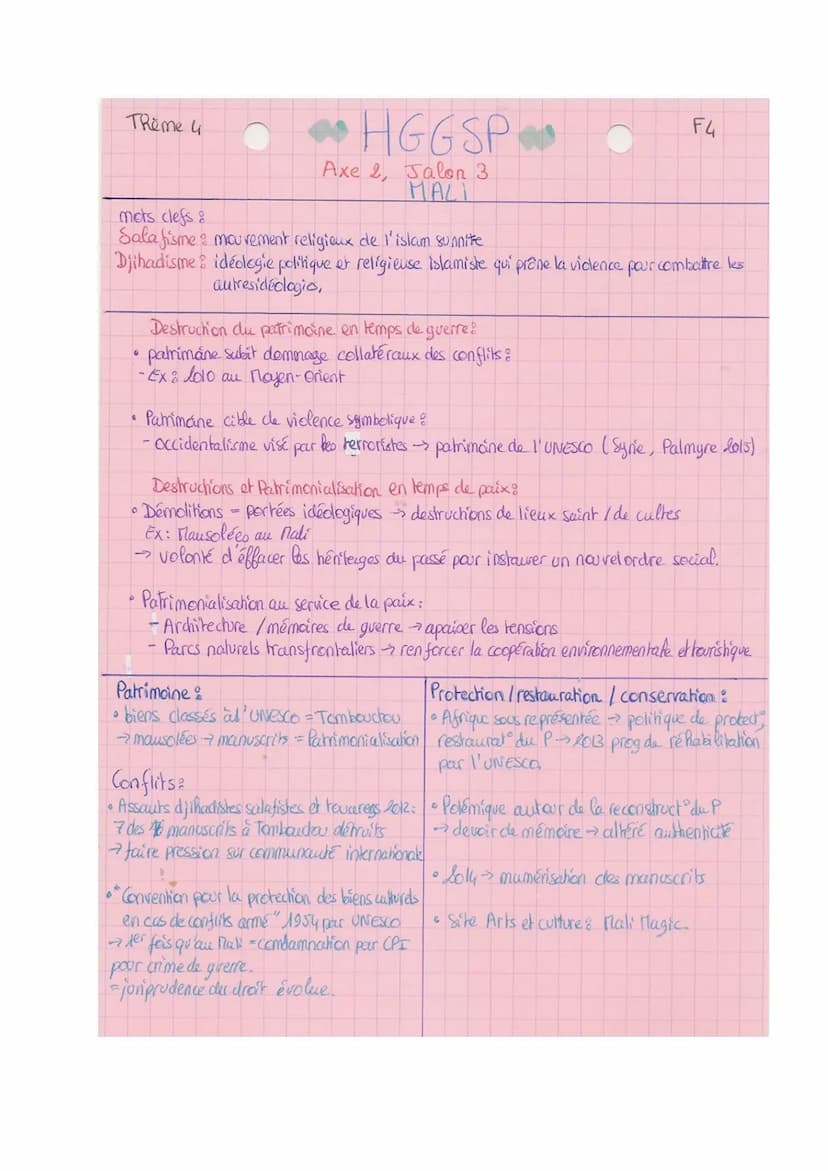 Thème 4
HGGSP
F4
Axe 2, Jalon 3
MALI
mots clefs :
Salafisme : mouvement religieux de l'islam sunnite
Djihadisme : idéologie politique et religieuse islamiste qui prône la violence pour combattre les
autres idéologies,
Destruction du patrimoine en temps de guerre :
• patrimoine subit dommage collatéraux des conflits :
- Ex : 2010 au Moyen-Orient
• Patrimoine cible de violence symbolique :
- occidentalisme visé par les terroristes → patrimoine de l'UNESCO (Syrie, Palmyre 2015)
Destructions et Patrimonialisation en temps de paix :
• Démolitions = portées idéologiques → destructions de lieux saint / de cultes
Ex : Mausolées au Mali
→ volonté d'éffacer les héritages du passé pour instaurer un nouvel ordre social.
• Patrimonialisation au service de la paix :
- Architecture / mémoires de guerre → apaiser les tensions
- Parcs naturels transfrontaliers → renforcer la coopération environnementale et touristique
Patrimoine :
• biens classés à l'UNESCO = Tombouctou
→ mausolées → manuscrits = Patrimonialisation
Conflits :
• Assauts djihadistes salafistes et touaregs 2012 :
7 des manuscrits à Tombouctou détruits
→ faire pression sur communauté internationale
• "Convention pour la protection des biens culturels
en cas de conflits armé" 1954 par UNESCO
→ 1er fois qu'au Mali = condamnation par CPI
pour crime de guerre.
= jurisprudence du droit évolue.
Protection / restauration / conservation :
• Afrique sous représentée → politique de protect°,
restaurat° du P → 2013 prog de réhabilitation
par l'UNESCO
• Polémique autour de la reconstruct° du P
→ devoir de mémoire → altéré authenticité
• 2014 → numérisation des manuscrits
• Site Arts et culture : Mali Magic.